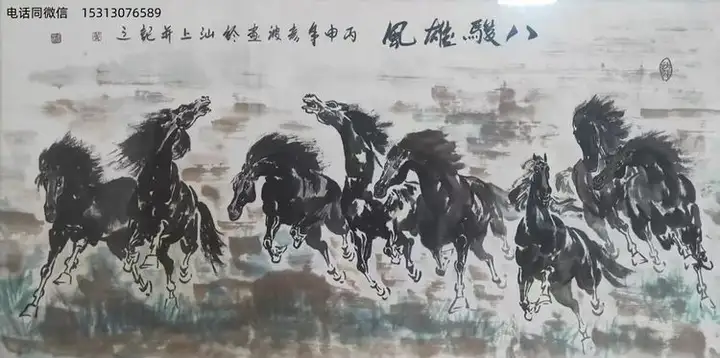 电话同微信 15313076589
八骏雄风
丙申年春波画于汕上并记之